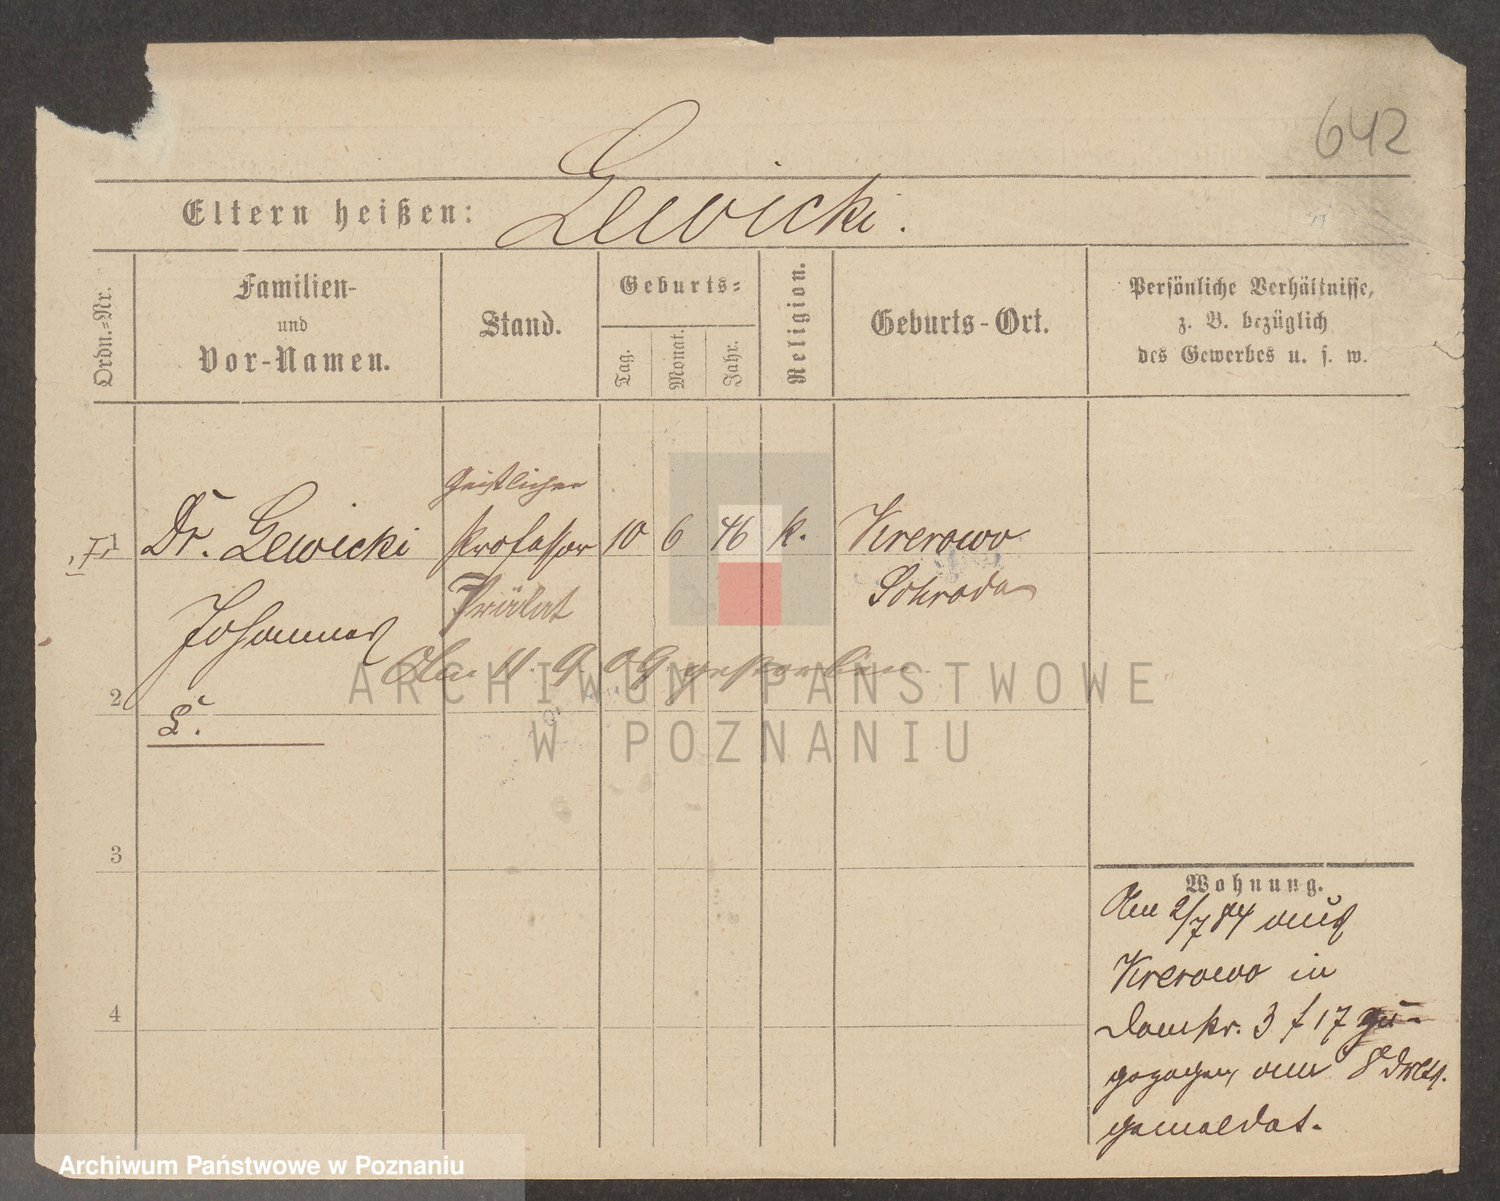 642
Eltern heißen: Lewicki.
Ordn.-Nr.
Familien-
und
Vor-Namen.
Stand.
Geburts-
Tag.
Monat.
Jahr.
Religion.
Geburts-Ort.
Persönliche Verhältnisse,
z. B. bezüglich
des Gewerbes u. s. w.
Geistlicher
1 Dr. Lewicki Professor 10 6 46 k. Krerowo
Johannes Prälat Schroda
Am 11. 9. 09 gestorben
2
L.
3
4
Wohnung.
Am 2/7 84 aus
Krerowo in
Domstr. 3 / 17 zu-
gezogen, am 8
gemeldet.
ARCHIWUM PAŃSTWOWE
W POZNANIU
Archiwum Państwowe w Poznaniu